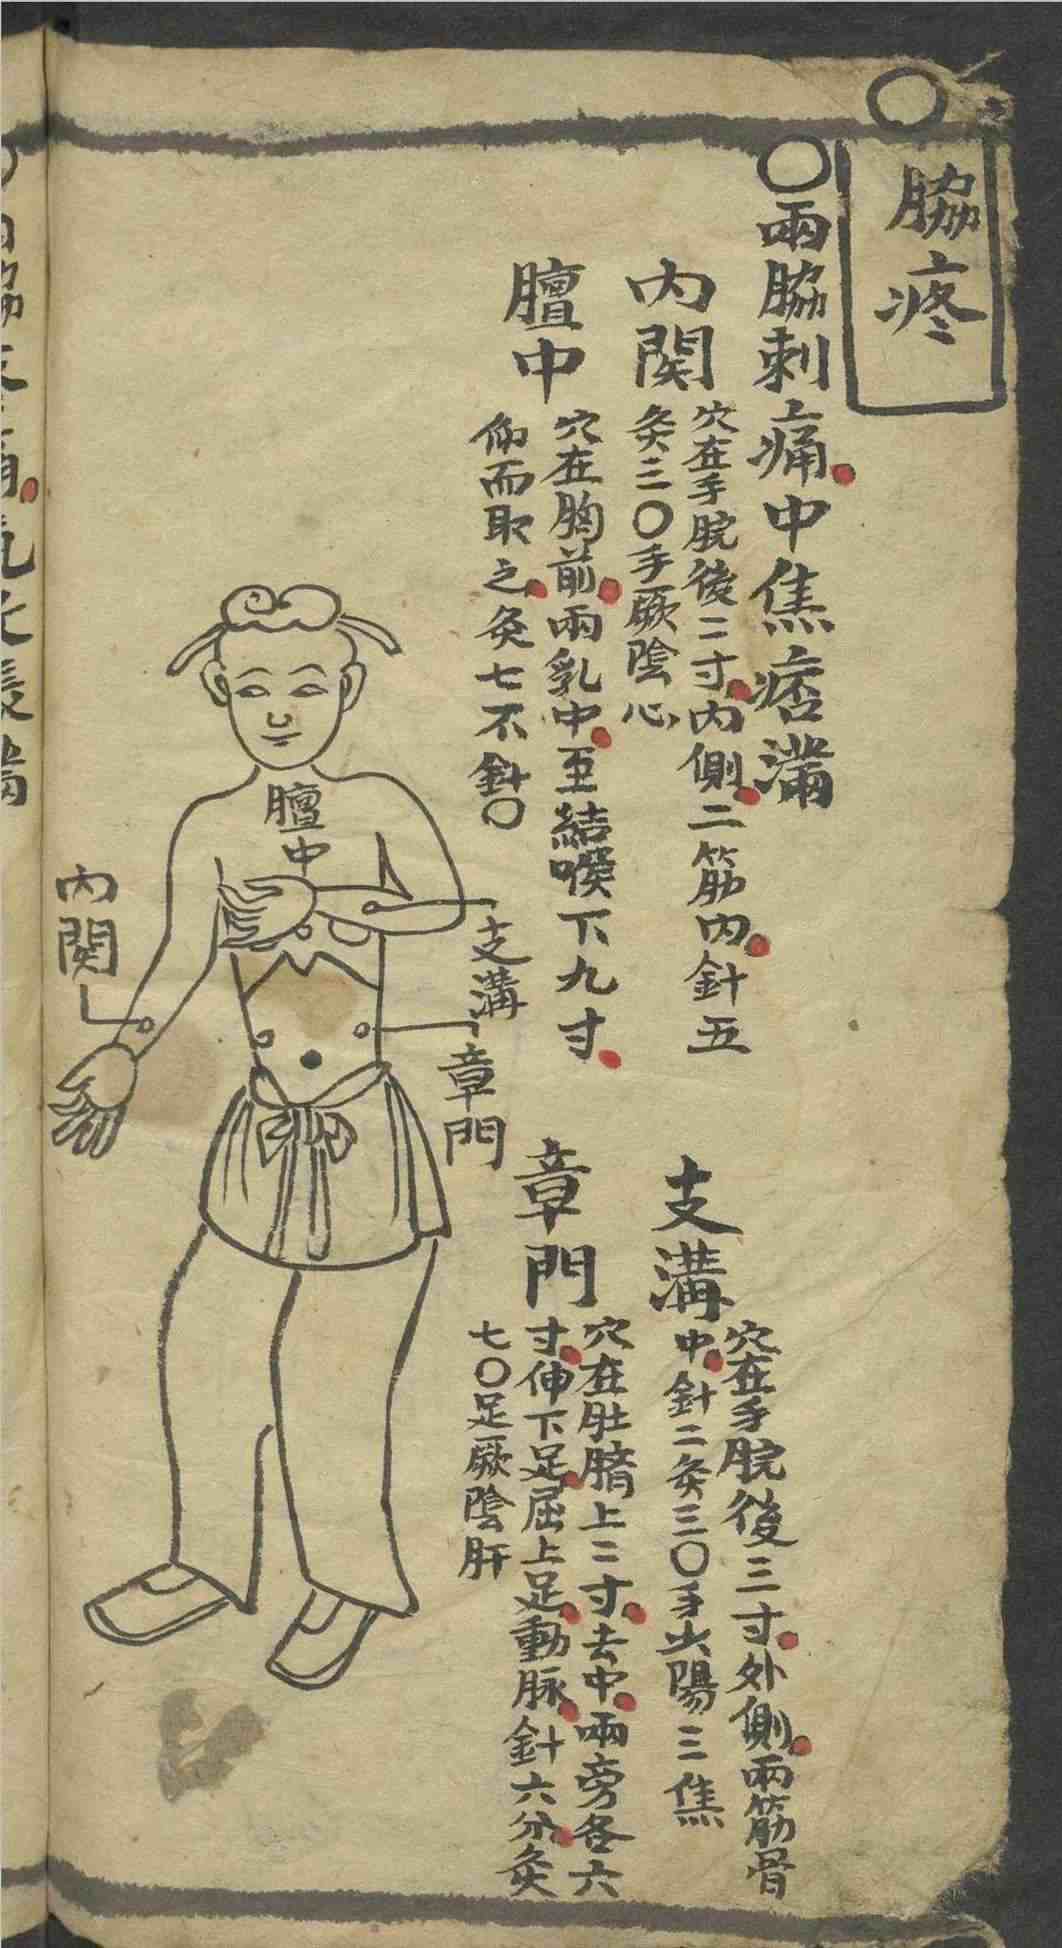 脇疼
○兩脇刺痛中焦痞滿
內関
穴在手腕後二寸內側二筋內針五
灸三○手厥陰心
膻中
穴在胸前兩乳中至結喉下九寸
仰而取之灸七不針○
支溝
穴在手腕後三寸外側兩筋骨
中針二灸三○手少陽三焦
章門
穴在肚臍上二寸去中兩旁各六
寸伸下足屈上足動脉針六分灸
七○足厥陰肝
膻中
內関
支溝
章門